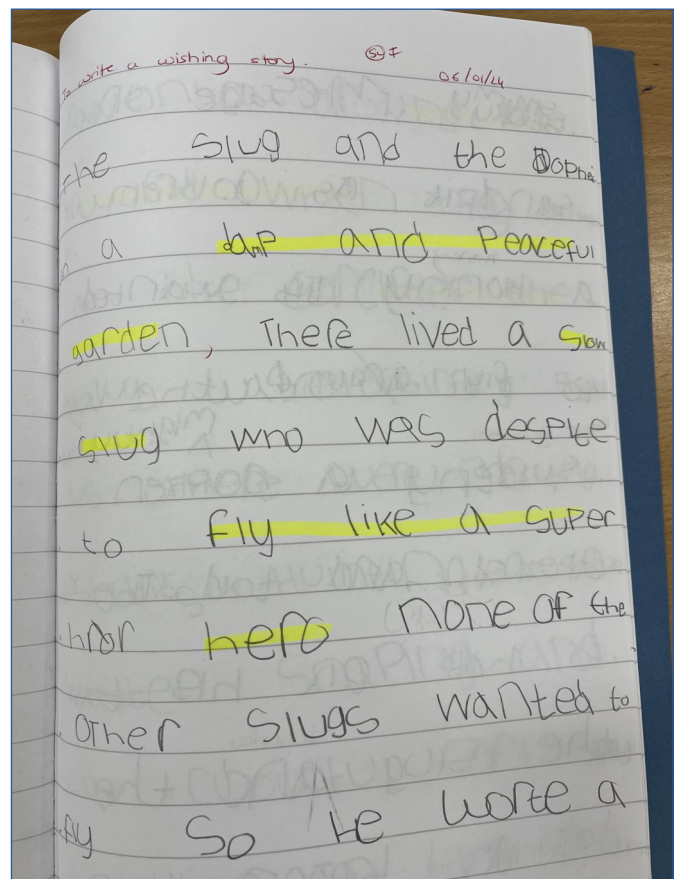 To write a wishing story. SYI 06/01/24
the Slug and the Dophi
a damp and Peaceful
garden, There lived a Slow
slug who was despite
to fly like a super
hror hero none of the
other Slugs wanted to
fly So He worte a